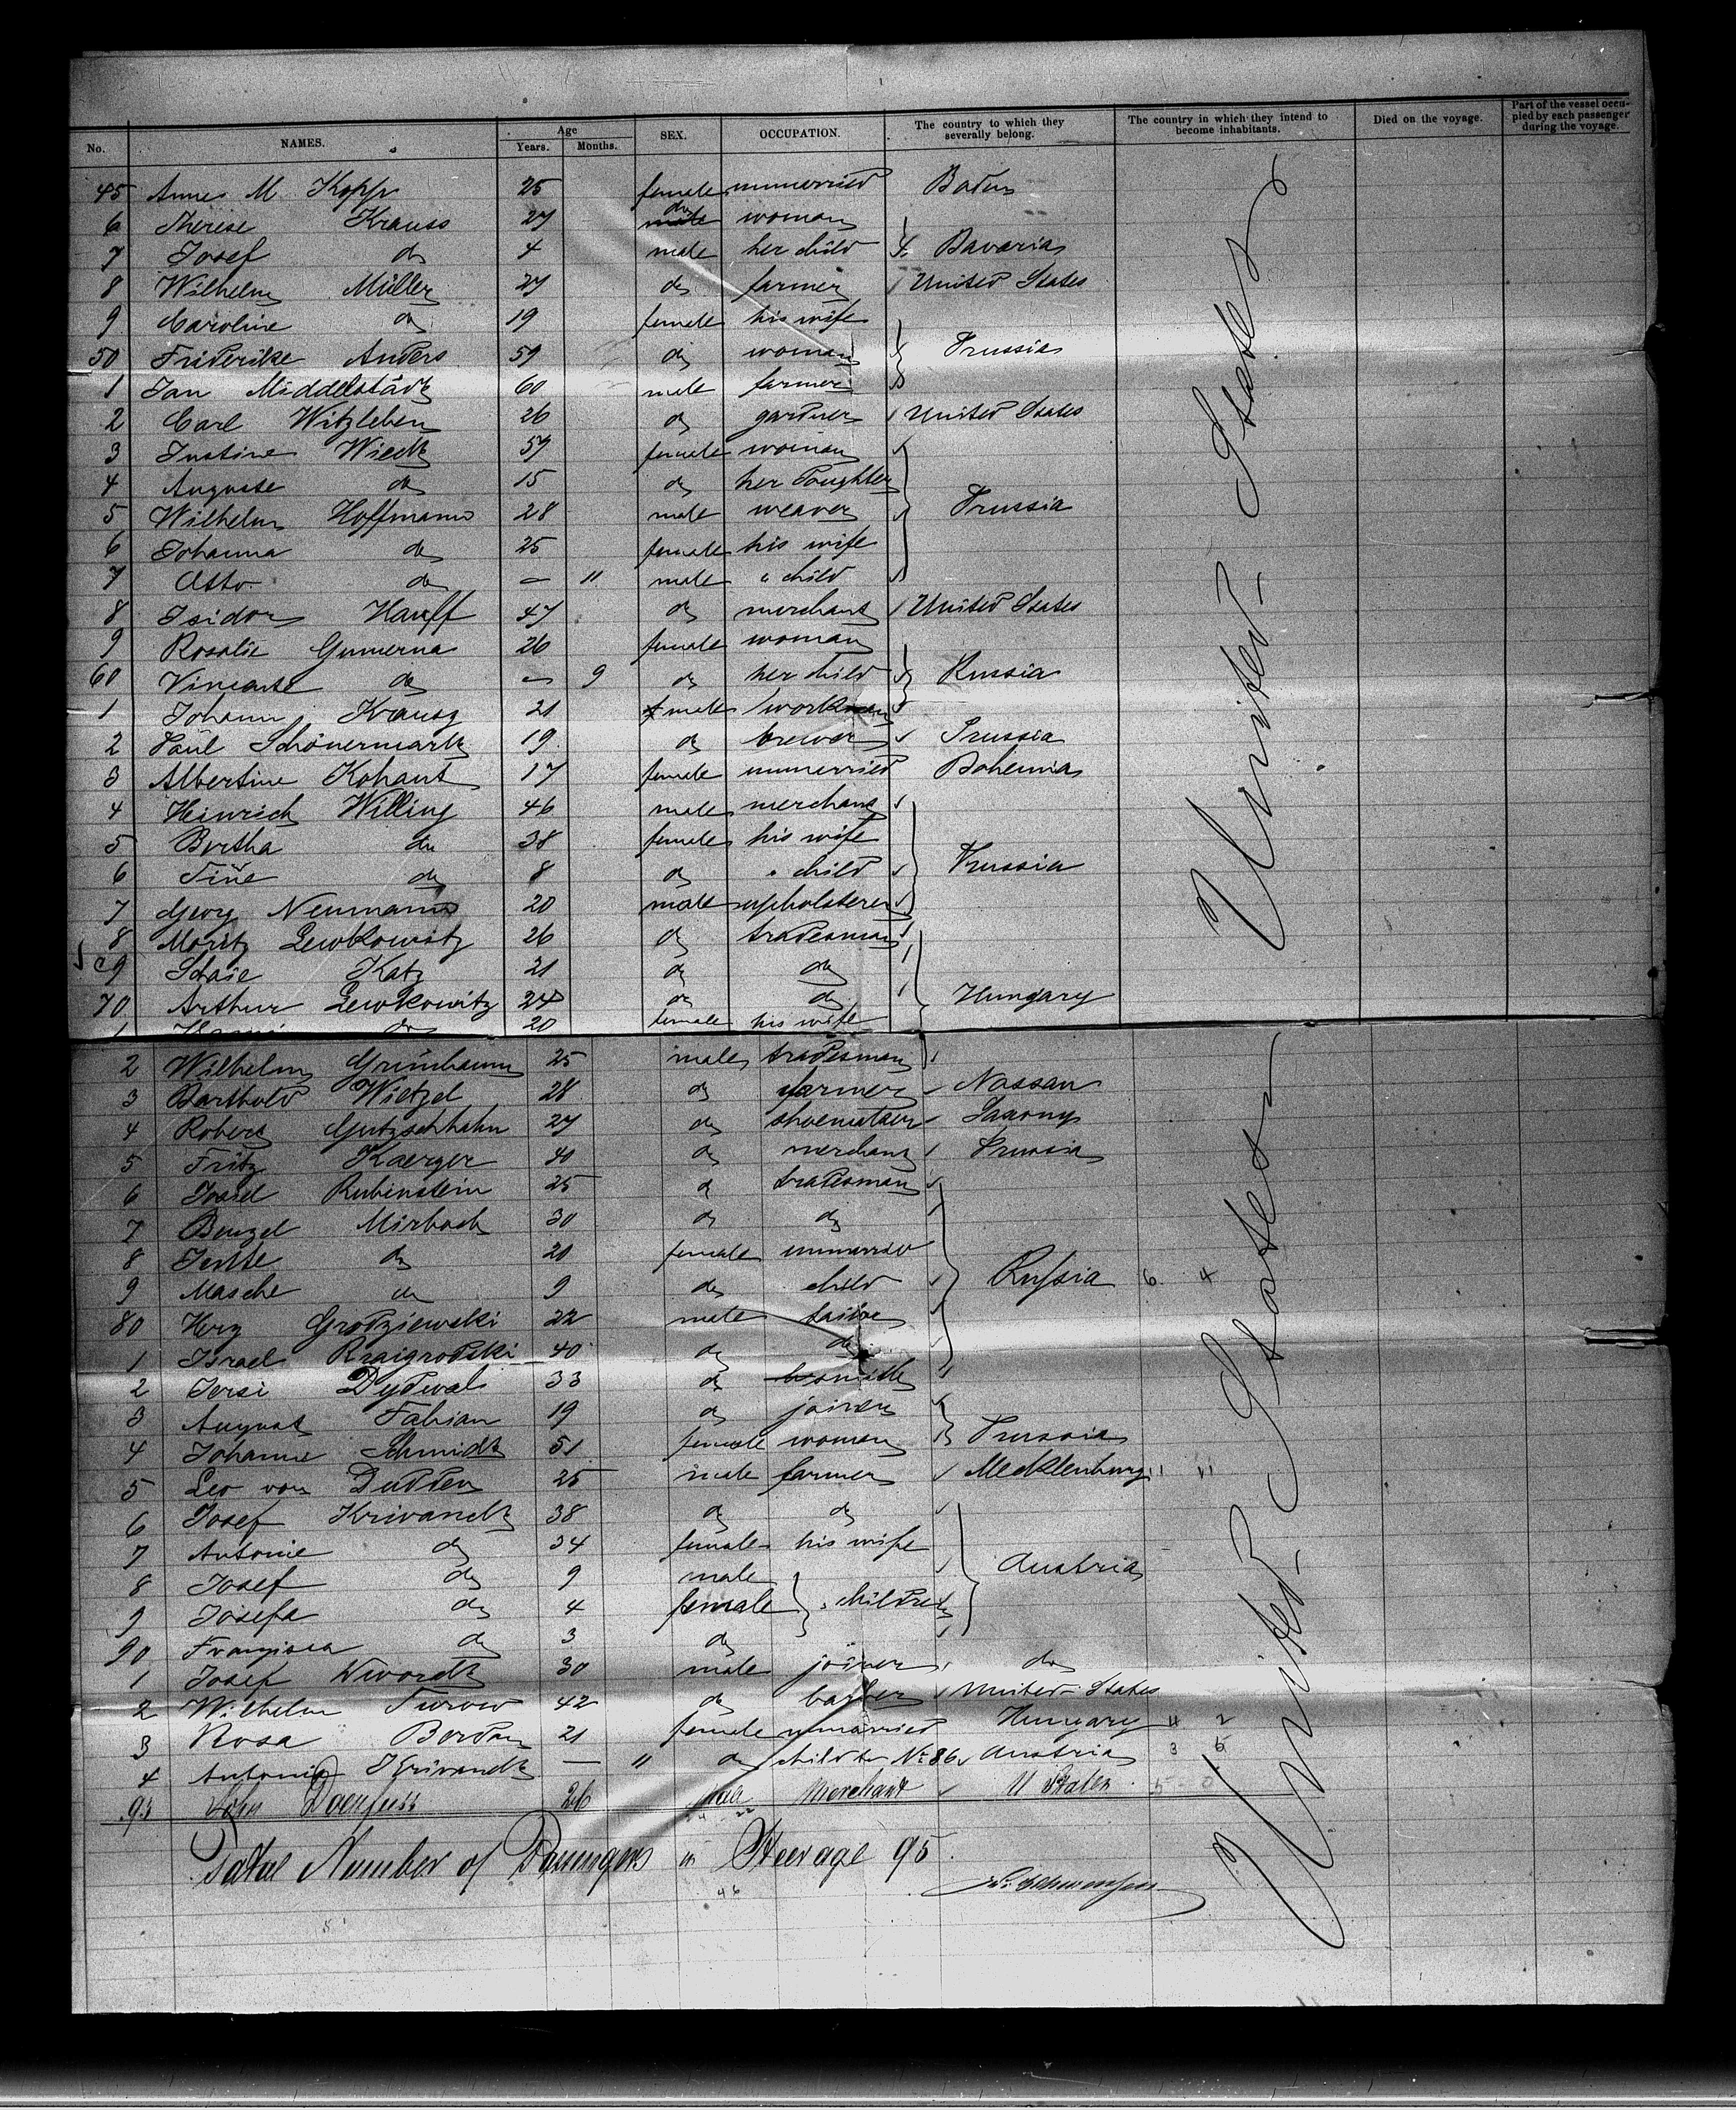 No. NAMES. Age Years. Months. SEX. OCCUPATION. The country to which they severally belong. The country in which they intend to become inhabitants. Died on the voyage. Part of the vessel occupied by each passenger during the voyage.
45 Anna M. Kopp 25 female unmerried Baden
6 Therese Krauss 27 do woman
7 Josef do 4 male her child Bavaria
8 Wilhelm Müller 27 do farmer United States
9 Caroline do 19 female his wife
50 Friderike Anders 59 do woman Prussia
1 Jan Middelstädt 60 male farmer
2 Carl Witzleben 26 do gardner United States
3 Justine Wiedt 57 female woman
4 Auguste do 15 do her doughter
5 Wilhelm Hoffmann 28 male weaver Prussia
6 Johanna do 25 female his wife
7 Otto do — 11 male " child
8 Isidor Hauff 47 do merchant United States
9 Rosalie Gumerna 26 female woman
60 do — 9 do her child Russia
1 Johann Krausz 21 male workman
2 Paul Schönermark 19 do brewer Prussia
3 Albertine Kohaut 17 female unmerried Bohemia
4 Heinrich Willing 46 male merchant
5 Bertha do 38 female his wife
6 Tine do 8 do " child Prussia
7 Georg Neumann 20 male upholsterer
8 Moritz Lewkowitz 26 do tradesman
9 Katz 21 do do
70 Arthur Lewkowitz 24 do do Hungary
1 do 20 female his wife
2 Wilhelm Grünbaum 25 male tradesman
3 Barthold Wietzel 28 do farmer Nassau
4 Robert Gutzschhahn 27 do shoemaker Saxony
5 Fritz Kaerger 41 do merchant Prussia
6 Rubinstein 25 do tradesman
7 Mirbach 30 do do
8 Jentte do 20 female unmarried
9 Masche do 9 do child Russia 6 4
80 Herz Grodziewski 22 male
1 Israel Kraigrodski 40 do do
2 Jersi Dydwal 33 do smith
3 August Fabian 19 do joiner
4 Johanne Schmidt 51 female woman Prussia
5 Leo von 25 male farmer Mecklenburg
6 Josef Krivandt 38 do do
7 Antonie do 34 female his wife Austria
8 Josef do 9 male
9 Josefa do 4 female " children
90 Franzisca do 3 do
1 Josef 30 male joiner do
2 Wilhelm Turow 42 do United States
3 Rosa Bordan 21 female unmarried Hungary 4 2
4 Antonia Krivandt — 11 do child to No 86 Austria 3 5
95 John 26 male Merchant U States 5 0
United States
United States
Total Number of Passengers in Steerage 95.
46